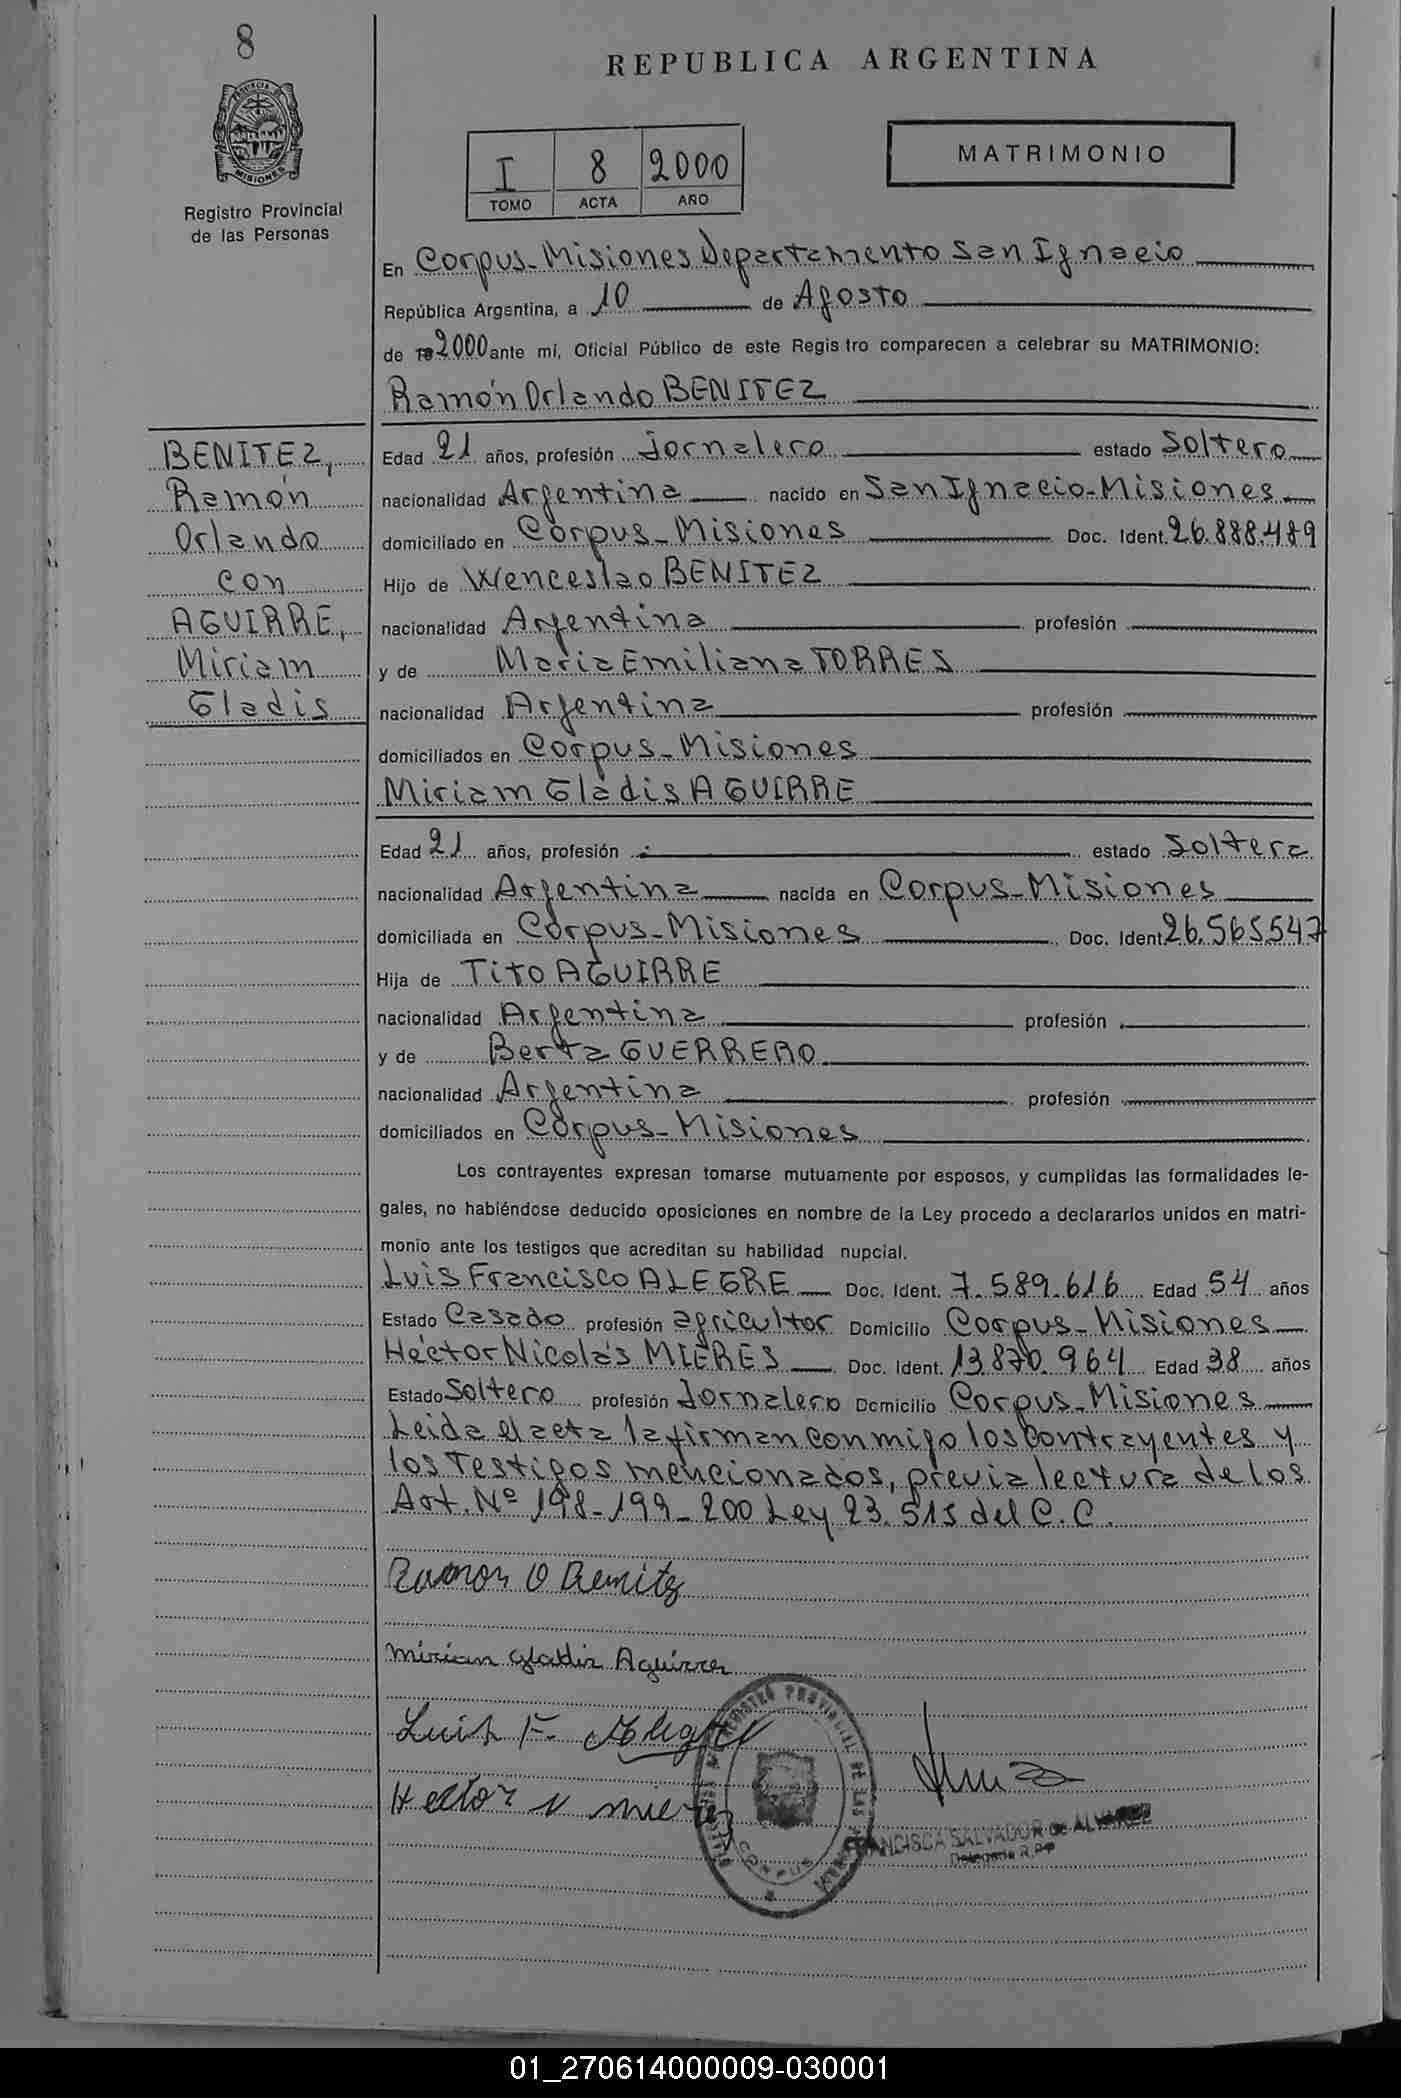 8
REPUBLICA ARGENTINA
PROVINCIA DE
MISIONES
Registro Provincial
de las Personas
I 8 2000
TOMO ACTA AÑO
MATRIMONIO
En Corpus-Misiones Departamento San Ignacio
República Argentina, a 10 de Agosto
de 19 2000 ante mí, Oficial Público de este Regis tro comparecen a celebrar su MATRIMONIO:
Ramón Orlando BENITEZ
BENITEZ,
Ramón
Orlando
con
AGUIRRE,
Miriam
Gladis
Edad 21 años, profesión Jornalero estado Soltero
nacionalidad Argentina nacido en San Ignacio-Misiones
domiciliado en Corpus-Misiones Doc. Ident. 26.888.489
Hijo de Wenceslao BENITEZ
nacionalidad Argentina profesión
y de Maria Emiliana TORRES
nacionalidad Argentina profesión
domiciliados en Corpus-Misiones
Miriam Gladis AGUIRRE
Edad 21 años, profesión estado Soltera
nacionalidad Argentina nacida en Corpus-Misiones
domiciliada en Corpus-Misiones Doc. Ident 26.565547
Hija de Tito AGUIRRE
nacionalidad Argentina profesión
y de Berta GUERRERO
nacionalidad Argentina profesión
domiciliados en Corpus-Misiones
Los contrayentes expresan tomarse mutuamente por esposos, y cumplidas las formalidades le-
gales, no habiéndose deducido oposiciones en nombre de la Ley procedo a declararlos unidos en matri-
monio ante los testigos que acreditan su habilidad nupcial.
Luis Francisco ALEGRE Doc. Ident. 7.589.616 Edad 54 años
Estado Casado profesión agricultor Domicilio Corpus-Misiones
Héctor Nicolás MIERES Doc. Ident. 13.870.964 Edad 38 años
Estado Soltero profesión Jornalero Domicilio Corpus-Misiones
Leida el acta la firman conmigo los contrayentes y
los testigos mencionados, previa lectura de los
Art. Nº 198-199-200 Ley 23.515 del C.C.
Ramon O Benitez
Mirian Gladis Aguirre
Luis F. Alegre
Hector N mieres
REGISTRO PROVINCIAL DE LAS
CORPUS
FRANCISCA SALVADOR de ALVAREZ
Delegada R.P.P
01_270614000009-030001